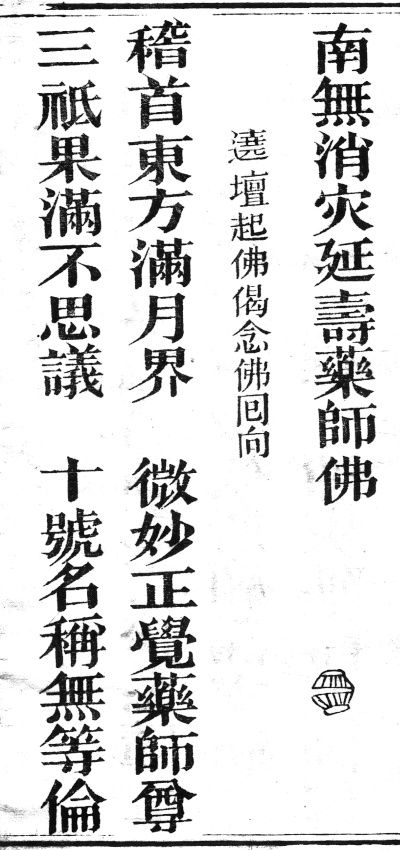 南無消灾延壽藥師佛
遶壇起佛偈念佛囘向
稽首東方滿月界　微妙正覺藥師尊
三祇果滿不思議　十號名稱無等倫